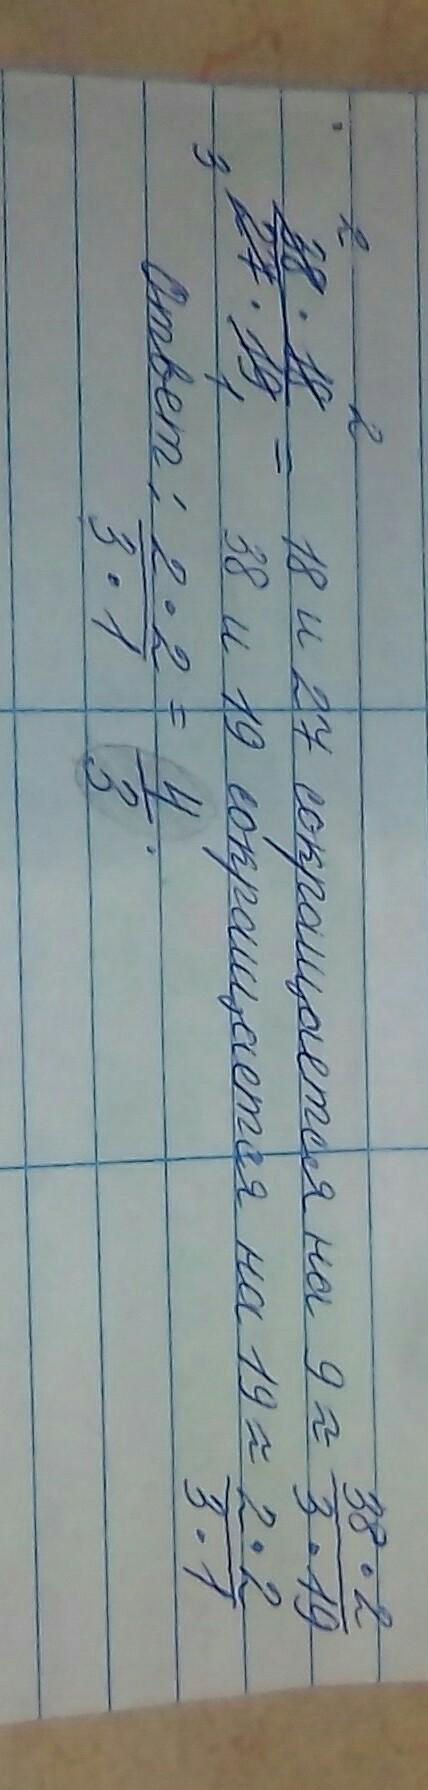 2 2
38 · 18 / 27 · 19 = 18 и 27 сокращается на 9 ≈ 38 · 2 / 3 · 19
3 1 38 и 19 сокращается на 19 ≈ 2 · 2 / 3 · 1
Ответ: 2 · 2 / 3 · 1 = 4 / 3.